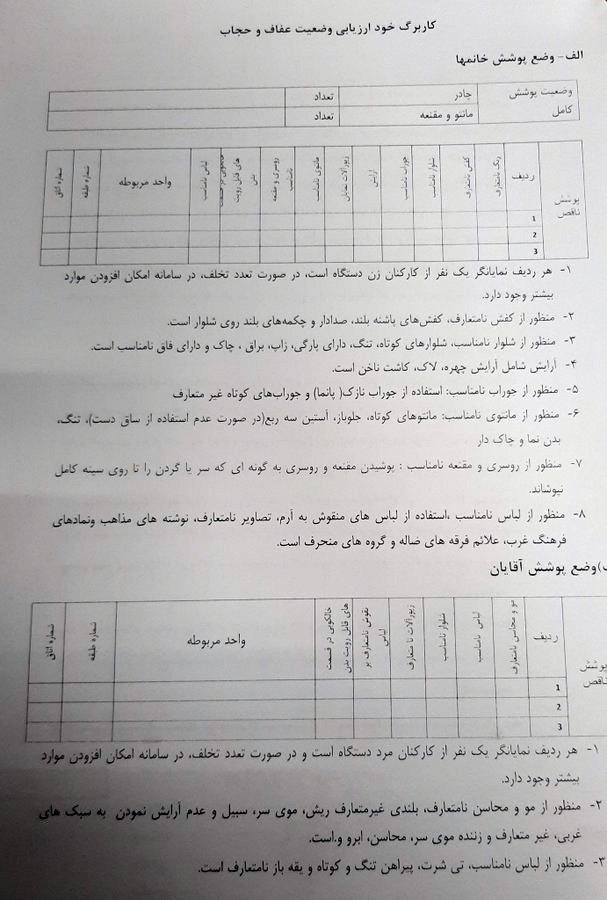 کاربرگ خود ارزیابی وضعیت عفاف و حجاب
الف- وضع پوشش خانمها
وضعیت پوشش کامل
چادر
تعداد
مانتو و مقنعه
تعداد
پوشش ناقص
ردیف
رنگ نامتعارف
کفش نامتعارف
شلوار نامناسب
جوراب نامناسب
آرایش
زیورآلات نمایان
مانتوی نامناسب
روسری و مقنعه نامناسب
خالکوبی در قسمت های قابل رویت بدن
لباس نامناسب
واحد مربوطه
شماره طبقه
شماره اتاق
1
2
3
۱- هر ردیف نمایانگر یک نفر از کارکنان زن دستگاه است، در صورت تعدد تخلف، در سامانه امکان افزودن موارد
بیشتر وجود دارد.
۲- منظور از کفش نامتعارف، کفش‌های پاشنه بلند، صدادار و چکمه‌های بلند روی شلوار است.
۳- منظور از شلوار نامناسب، شلوارهای کوتاه، تنگ، دارای پارگی، زاپ، براق ، چاک و دارای فاق نامناسب است.
۴- آرایش شامل آرایش چهره، لاک، کاشت ناخن است.
۵- منظور از جوراب نامناسب: استفاده از جوراب نازک( پانما) و جوراب‌های کوتاه غیر متعارف
۶- منظور از مانتوی نامناسب: مانتوهای کوتاه، جلوباز، آستین سه ربع(در صورت عدم استفاده از ساق دست)، تنگ،
بدن نما و چاک دار
۷- منظور از روسری و مقنعه نامناسب : پوشیدن مقنعه و روسری به گونه ای که سر یا گردن را تا روی سینه کامل
نپوشاند.
۸- منظور از لباس نامناسب ،استفاده از لباس های منقوش به آرم، تصاویر نامتعارف، نوشته های مذاهب ونمادهای
فرهنگ غرب، علائم فرقه های ضاله و گروه های منحرف است.
ب)وضع پوشش آقایان
پوشش ناقص
ردیف
مو و محاسن نامتعارف
لباس نامناسب
شلوار نامناسب
زیورآلات نا متعارف
نقوش نامتعارف بر لباس
خالکوبی در قسمت های قابل رویت بدن
واحد مربوطه
شماره طبقه
شماره اتاق
1
2
3
۱- هر ردیف نمایانگر یک نفر از کارکنان مرد دستگاه است و در صورت تعدد تخلف، در سامانه امکان افزودن موارد
بیشتر وجود دارد.
۲- منظور از مو و محاسن نامتعارف، بلندی غیرمتعارف ریش، موی سر، سبیل و عدم آرایش نمودن به سبک های
غربی، غیر متعارف و زننده موی سر، محاسن، ابرو و.است.
۳- منظور از لباس نامناسب، تی شرت، پیراهن تنگ و کوتاه و یقه باز نامتعارف است.